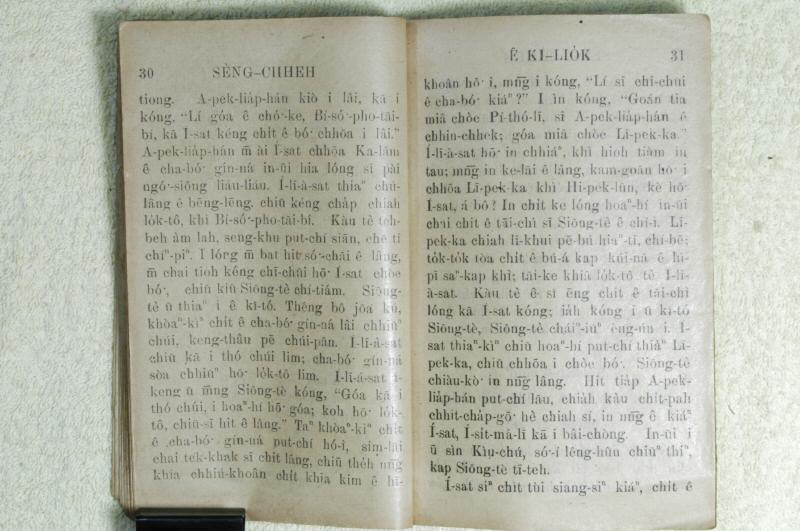 30 SÈNG-CHHEH
tiong. A-pek-lia̍p-hán kiò i lâi, kā i
kóng, “Lí góa ê chó·-ke, Bí-só·-pho-tāi-
bí, kā Í-sat kéng chi̍t ê bó· chhōa i lâi.”
A-pek-lia̍p-hán m̄ ài Í-sat chhōa Ka-lâm
ê cha-bó· gín-ná in-ūi hia lóng sī pài
ngó·-siōng liáu-liáu. Í-lī-à-sat thiaⁿ chú-
lâng ê bēng-lēng, chiū kéng cha̍p chiah
lo̍k-tô, khì Bí-só·-pho-tāi-bí. Kàu tè teh-
beh àm lah, seng-khu put-chí siān, chē tī
chíⁿ-piⁿ. I lóng m̄ bat hit só·-chāi ê lâng,
m̄ chai tio̍h kéng chī-chūi hō· Í-sat chòe
bó·, chiū kiû Siōng-tè chí-tiám. Siōng-
tè ū thiaⁿ i ê kî-tó. Thèng bô jōa kú,
khòaⁿ-kìⁿ chi̍t ê cha-bó· gín-ná lâi chhiūⁿ
chúi, keng-thâu pē chúi-pân. Í-lī-à-sat
chiū kā i thó chúi lim; cha-bó· gín-ná
sòa chhiūⁿ hō· lo̍k-tô lim. Í-lī-à-sat í-
keng ū mn̄g Siōng-tè kóng, “Góa kā i
thó chúi, i hoaⁿ-hí hō· góa; koh hō· lo̍k-
tô, chiū-sī hit ê lâng.” Taⁿ khòaⁿ-kìⁿ chit
ê cha-bó· gín-ná put-chí hó-ì, sim-lāi
chai tek-khak sī chit lâng, chiū the̍h nn̄g
khia chhiú-khoân chi̍t khia kim ê hī-
Ê KÌ-LIO̍K 31
khoân hō· i, mn̄g i kóng, “Lí sī chī-chūi
ê cha-bó· kiáⁿ?” I ìn kóng, “Goán tia
miâ chòe Pí-thó-lī, sī A-pek-lia̍p-hán ê
chhin-chhek; góa miâ chòe Lī-pek-ka.”
Í-lī-à-sat hō· in chhiáⁿ, khì hioh tiàm in
tau; mn̄g in ke-lāi ê lâng, kam-goān hō· i
chhōa Lī-pek-ka khì Hi-pek-lûn, kè hō·
Í-sat, á bô? In chit ke lóng hoaⁿ-hí in-ūi
chai chit ê tāi-chì sī Siōng-tè ê chí-ì. Lī-
pek-ka chiah lī-khui pē-bú hiaⁿ-tī, chí-bē;
to̍k-to̍k tòa chi̍t ê bú-á kap kúi-nā ê lú-
pī saⁿ-kap khì; tāi-ke khiâ lo̍k-tô tè Í-lī-
à-sat. Kàu tè ê sî ēng chit ê tāi-chì
lóng kā Í-sat kóng; ia̍h kóng i ū kî-tó
Siōng-tè, Siōng-tè chái-iūⁿ èng-ún i. Í-
sat thiaⁿ-kìⁿ chiū hoaⁿ-hí put-chí thiàⁿ Lī-
pek-ka, chiū chhōa i chòe bó·. Siōng-tè
chiàu-kò· in nn̄g lâng. Hit tia̍p A-pek-
lia̍p-hán put-chí lāu, chiah kàu chi̍t-pah
chhit-cha̍p-gō· hè chiah sí, in nn̄g ê kiáⁿ
Í-sat, Í-sit-má-lī kā i bâi-chòng. In-ūi i
ū sìn Kìu-chú, só·-í lêng-hûn chiūⁿ thiⁿ,
kap Siōng-tè tī-teh.
Í-sat siⁿ chi̍t tùi siang-siⁿ kiáⁿ, chi̍t ê